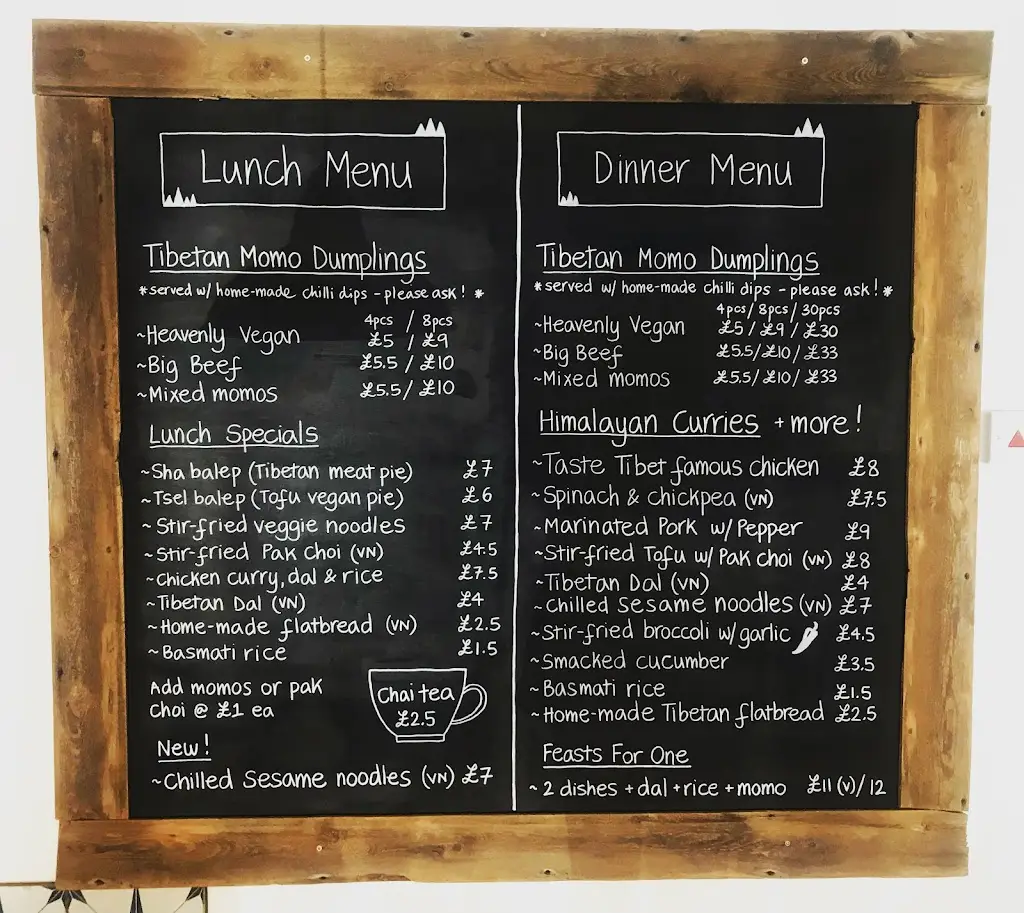 Lunch Menu
Tibetan Momo Dumplings
*served w/ home-made chilli dips - please ask! *
4pcs / 8pcs
~Heavenly Vegan £5 / £9
~Big Beef £5.5 / £10
~Mixed momos £5.5 / £10
Lunch Specials
~Sha balep (Tibetan meat pie) £7
~Tsel balep (Tofu vegan pie) £6
~Stir-fried veggie noodles £7
~Stir-fried Pak Choi (VN) £4.5
~Chicken curry, dal & rice £7.5
~Tibetan Dal (VN) £4
~Home-made flatbread (VN) £2.5
~Basmati rice £1.5
Add momos or pak
choi @ £1 ea
Chai tea
£2.5
New!
~Chilled Sesame noodles (VN) £7
Dinner Menu
Tibetan Momo Dumplings
*served w/ home-made chilli dips - please ask! *
4pcs / 8pcs / 30pcs
~Heavenly Vegan £5 / £9 / £30
~Big Beef £5.5 / £10 / £33
~Mixed momos £5.5 / £10 / £33
Himalayan Curries + more!
~Taste Tibet famous chicken £8
~Spinach & chickpea (VN) £7.5
~Marinated Pork w/ Pepper £9
~Stir-fried Tofu w/ Pak choi (VN) £8
~Tibetan Dal (VN) £4
~Chilled sesame noodles (VN) £7
~Stir-fried broccoli w/ garlic £4.5
~Smacked cucumber £3.5
~Basmati rice £1.5
~Home-made Tibetan flatbread £2.5
Feasts For One
~ 2 dishes + dal + rice + momo £11 (V) / 12